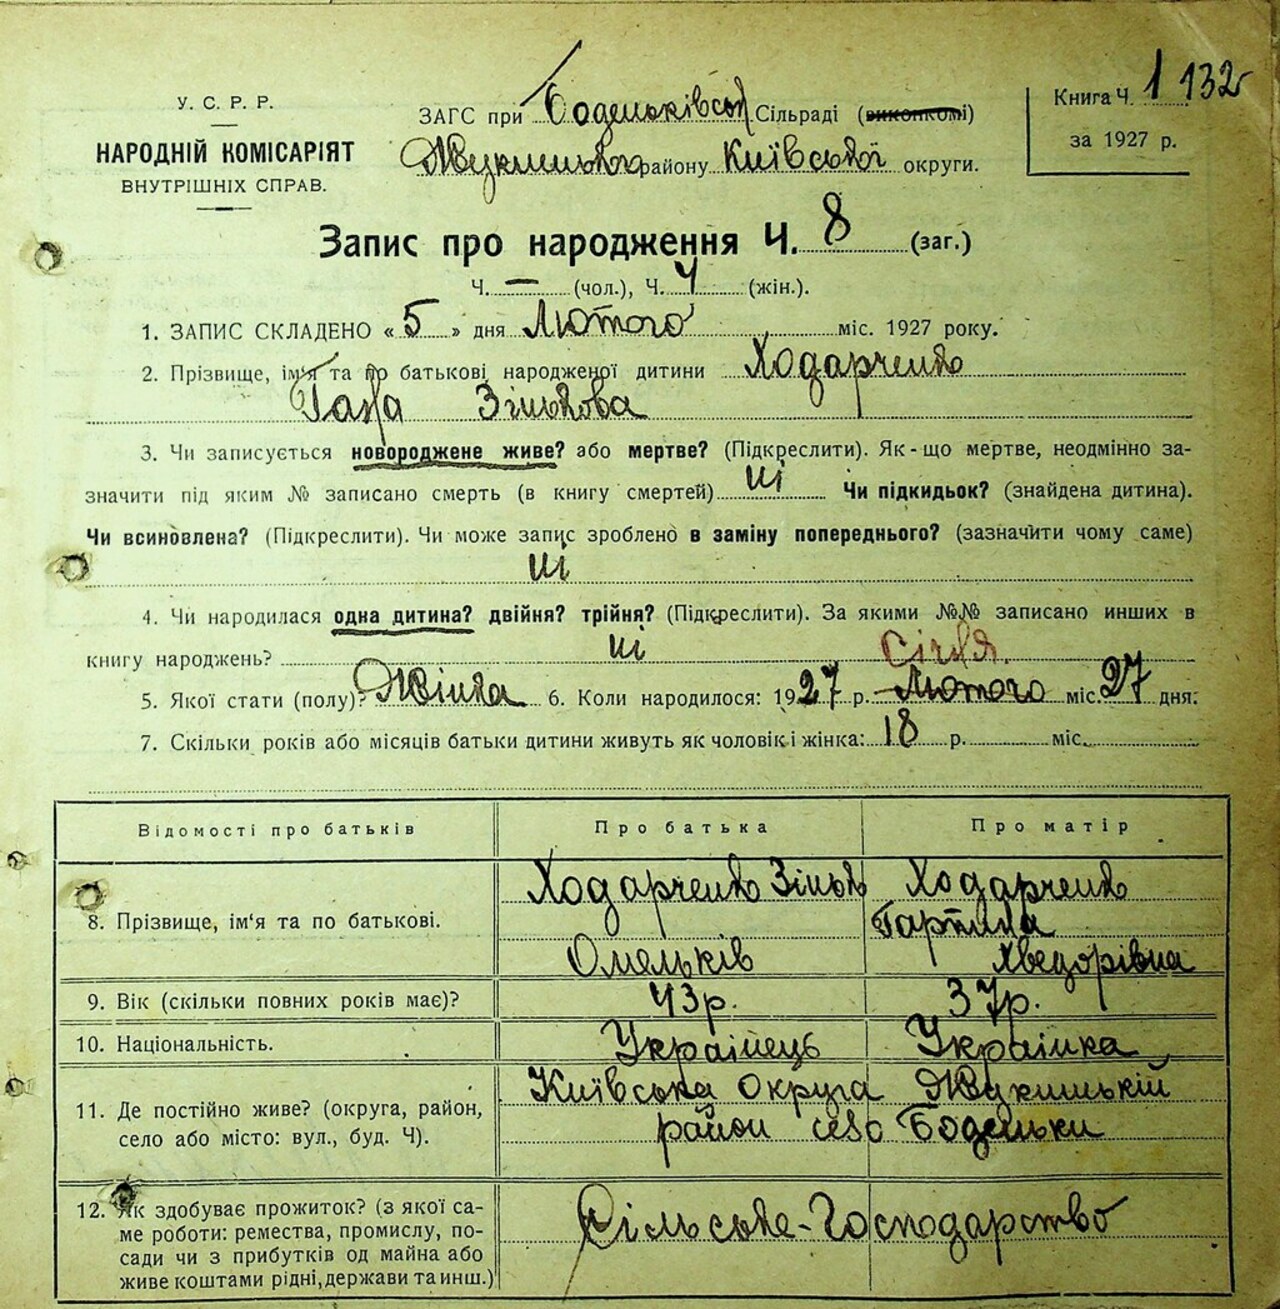 У. С. Р. Р.
НАРОДНІЙ КОМІСАРІЯТ
ВНУТРІШНІХ СПРАВ.
ЗАГС при Боденьківській Сільраді (виконкомі)
Жукинського району Київської округи.
Книга Ч. 1 132
за 1927 р.
Запис про народження Ч. 8 (заг.)
Ч. — (чол.), Ч. 4 (жін.).
1. ЗАПИС СКЛАДЕНО « 5 » дня Лютого міс. 1927 року.
2. Прізвище, ім'я та по батькові народженої дитини Ходарченко
Ганна Зінькова
3. Чи записується новороджене живе? або мертве? (Підкреслити). Як-що мертве, неодмінно за-
значити під яким № записано смерть (в книгу смертей) ні Чи підкидьок? (знайдена дитина).
Чи всиновлена? (Підкреслити). Чи може запис зроблено в заміну попереднього? (зазначити чому саме)
ні
4. Чи народилася одна дитина? двійня? трійня? (Підкреслити). За якими №№ записано инших в
книгу народжень? ні Січня.
5. Якої стати (полу)? Жінка 6. Коли народилося: 1927 р. Лютого міс. 27 дня.
7. Скільки років або місяців батьки дитини живуть як чоловік і жінка: 18 р. міс.
Відомості про батьків Про батька Про матір
8. Прізвище, ім'я та по батькові. Ходарченко Зінько Омельків Ходарченко Гарпина Хведорівна
9. Вік (скільки повних років має)? 43 р. 37 р.
10. Національність. Українець Українка
11. Де постійно живе? (округа, район, Київська округа Жукинській
село або місто: вул., буд. Ч). район село Боденьки
12. Як здобуває прожиток? (з якої са-
ме роботи: ремества, промислу, по- Сільське-Господарство
сади чи з прибутків од майна або
живе коштами рідні, держави та инш.)